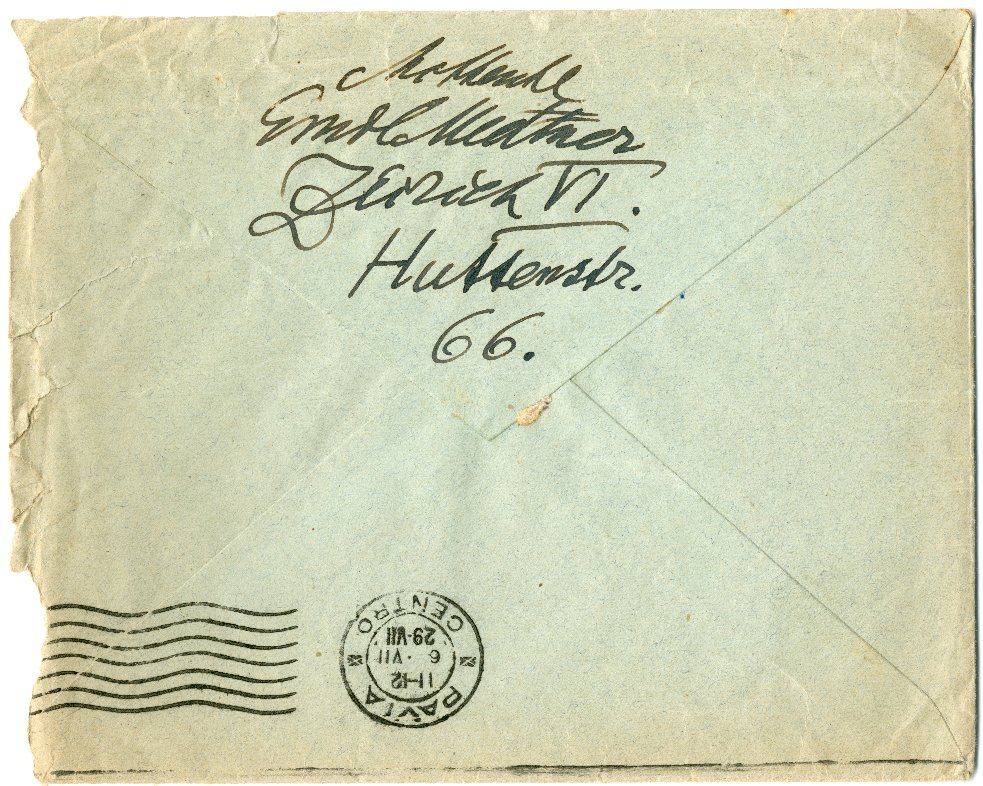 Mittente
Emil Medtner
Zürich VI.
Huttenstr.
66.
PAVIA
11-12
6 · VII
29-VII
CENTRO